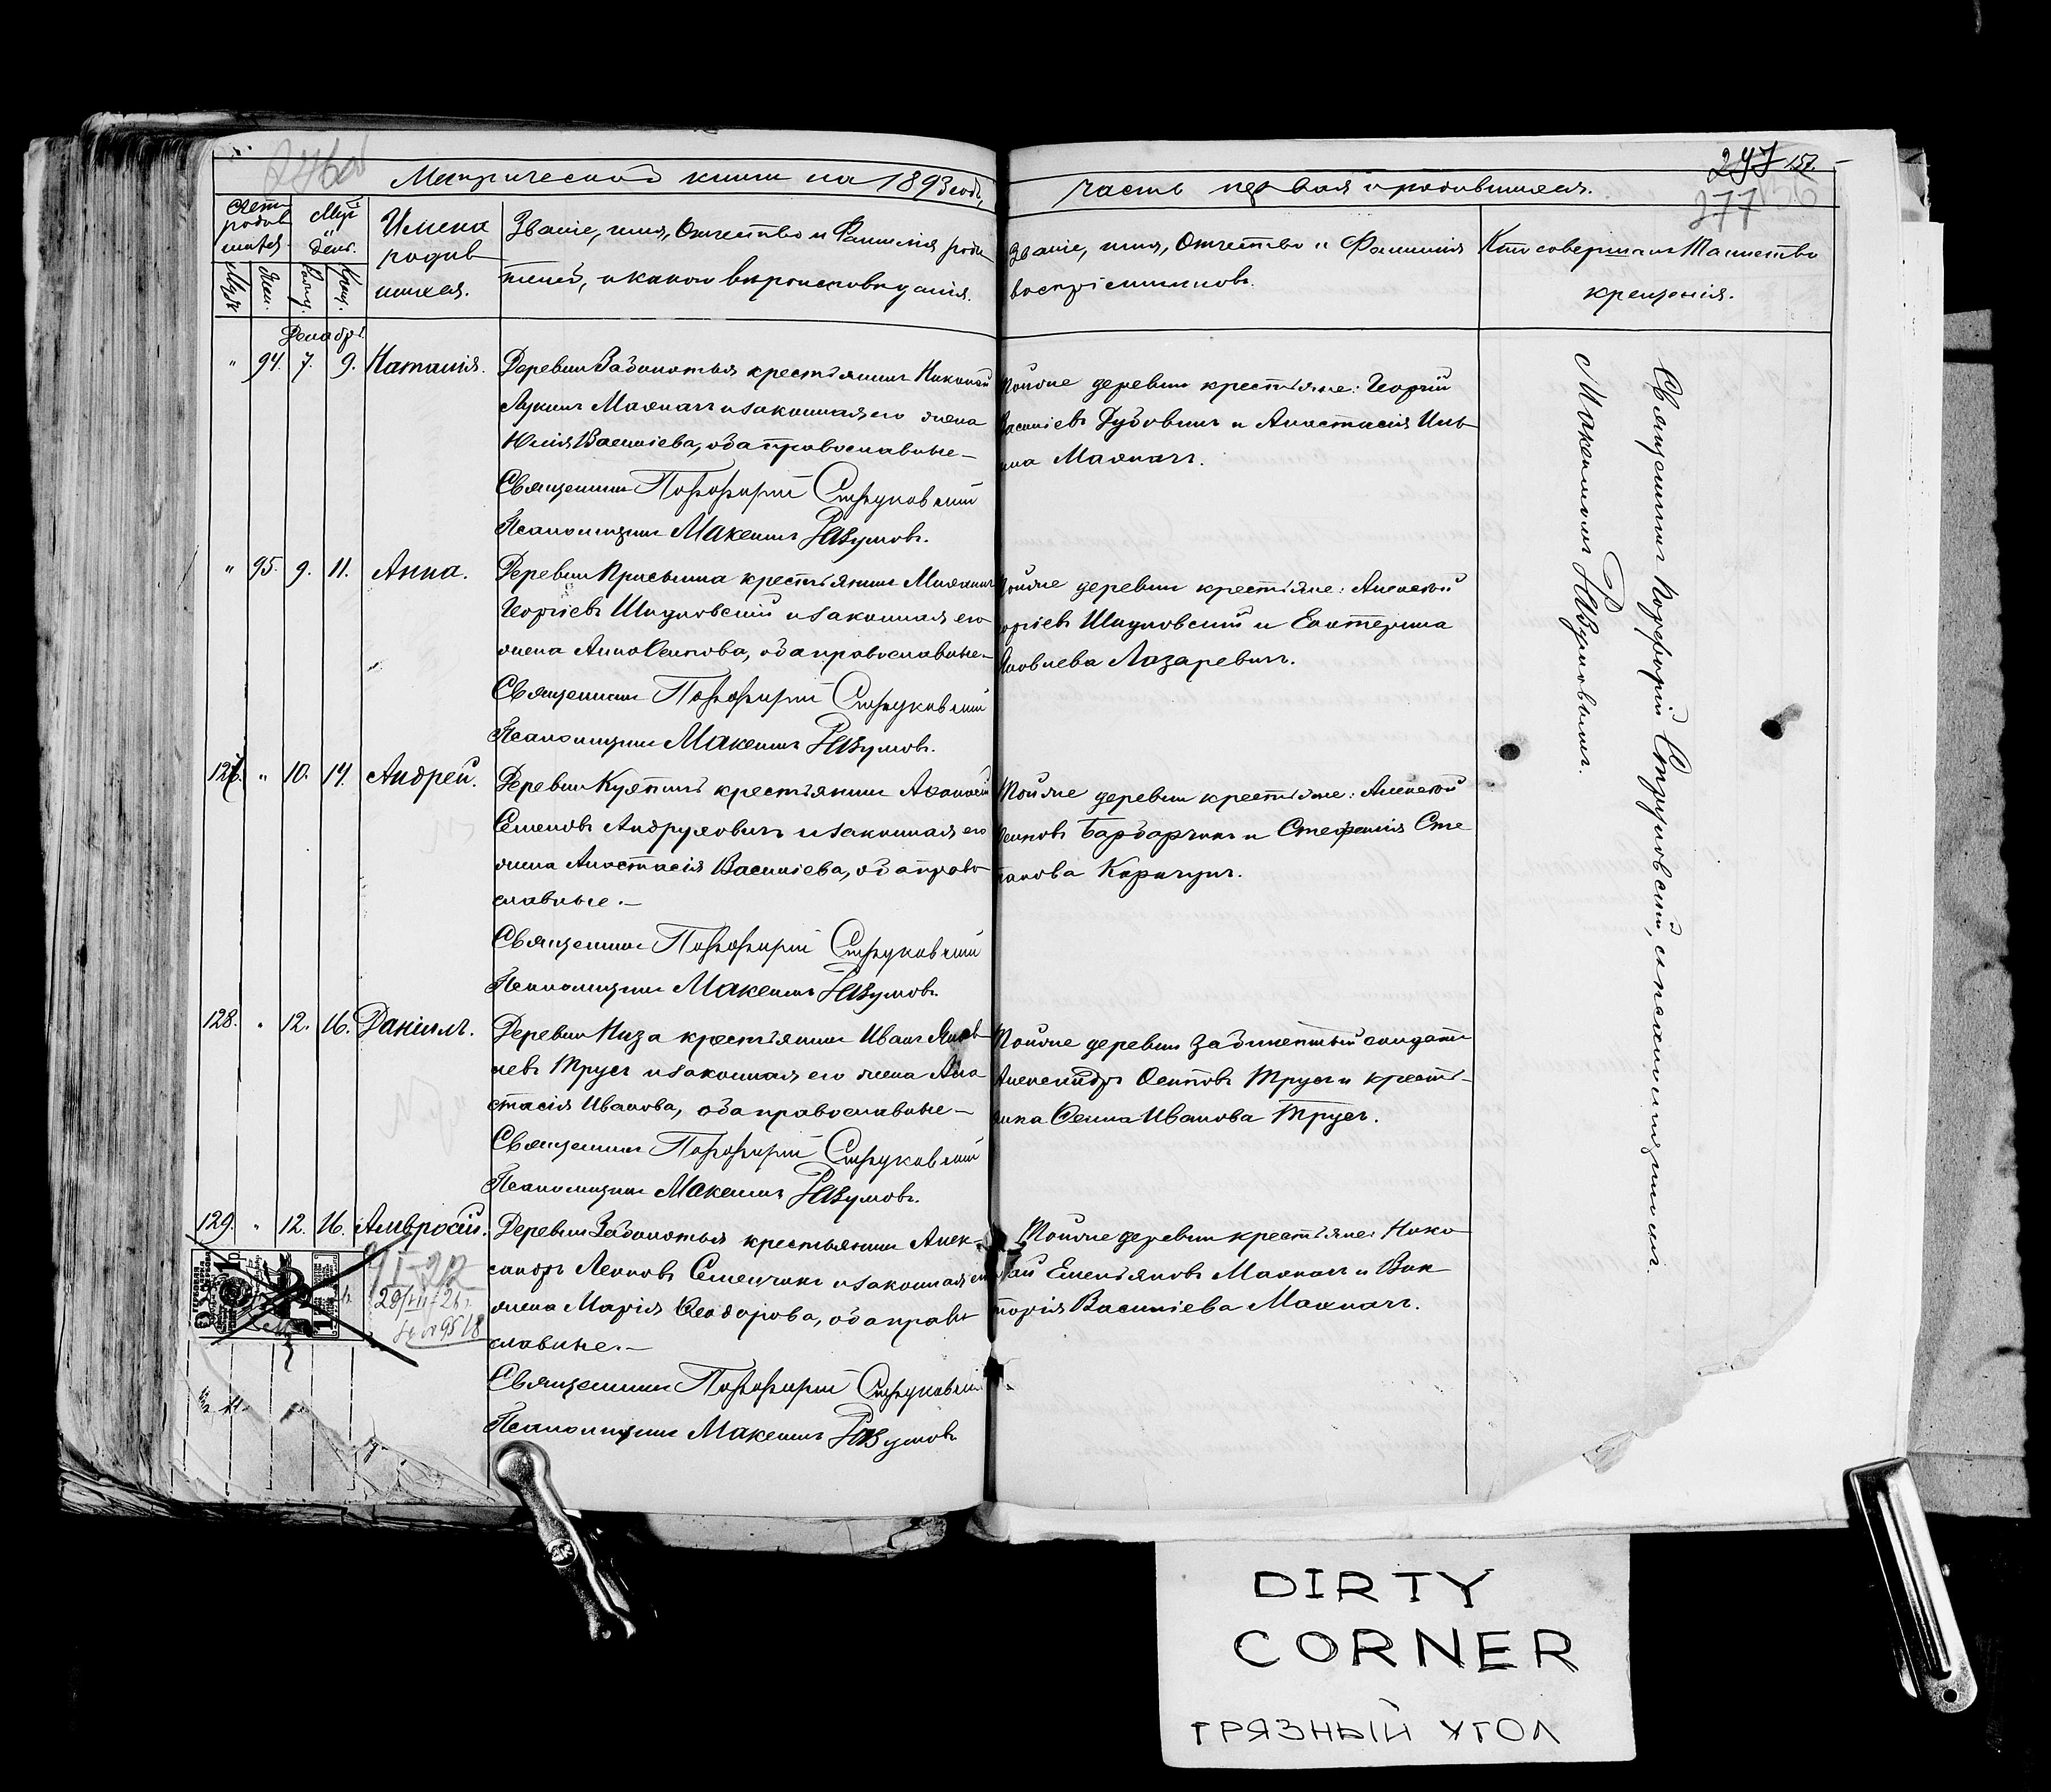 Метрической книги на 1893 годъ,
часть первая о родившихся.
297 157.
277
Счетъ родив шихся.
Муж. Жен.
Мѣс. и день.
Рожд. Крещ.
Имена родив шихся.
Званіе, имя, Отчество и Фамилія роди
телей, и какого вѣроисповѣданія.
Званіе, имя, Отчество и Фамилія
воспріемниковъ.
Кто совершалъ Таинство
крещенія.
Декабрь
" 94. 7. 9. Наталія.
Деревни Заболотья крестьянинъ Николай
Лукинъ Махначъ и законная его жена
Юлія Васильева, оба православные —
Священникъ Порфирій Струковскій
Псаломщикъ Максимъ Разумовъ.
Тойже деревни крестьяне: Георгій
Васильевъ Дубовикъ и Анастасія Иль
ина Махначъ.
" 95. 9. 11. Анна.
Деревни Присынка крестьянинъ Михаилъ
Георгіевъ Шидловскій и законная его
жена Анна Осипова, оба православные. —
Священникъ Порфирій Струковскій
Псаломщикъ Максимъ Разумовъ.
Тойже деревни крестьяне: Алексѣй
Георгіевъ Шидловскій и Екатерина
Яковлева Лазаревичъ.
127. " 10. 14. Андрей.
Деревни крестьянинъ Аѳанасій
Семеновъ Андруховичъ и законная его
жена Анастасія Васильева, оба право
славные. —
Священникъ Порфирій Струковскій
Псаломщикъ Максимъ Разумовъ.
Тойже деревни крестьяне: Алексѣй
Осиповъ Барбарчикъ и Стефанія Сте
панова
128. " 12. 16. Даніилъ.
Деревни Низа крестьянинъ Иванъ Яков
левъ Трусъ и законная его жена Ана
стасія Иванова, оба православные —
Священникъ Порфирій Струковскій
Псаломщикъ Максимъ Разумовъ.
Тойже деревни солдатъ
Александръ Осиповъ Трусъ и крестъ-
янка Иванова Трусъ.
129. " 12. 16. Амвросій.
Деревни Заболотья крестьянинъ Алек-
сандръ Леоновъ Семенчикъ и законная его
жена Марія Ѳеодорова, оба право
славные. —
Священникъ Порфирій Струковскій
Псаломщикъ Максимъ Разумовъ
Тойже деревни крестьяне: Нико
лай Емельяновъ Махначъ и Вик
торія Васильева Махначъ.
Священникъ Порфирій Струковскій, съ псаломщикомъ
Максимомъ Разумовымъ.
DIRTY
CORNER
ГРЯЗНЫЙ УГОЛ